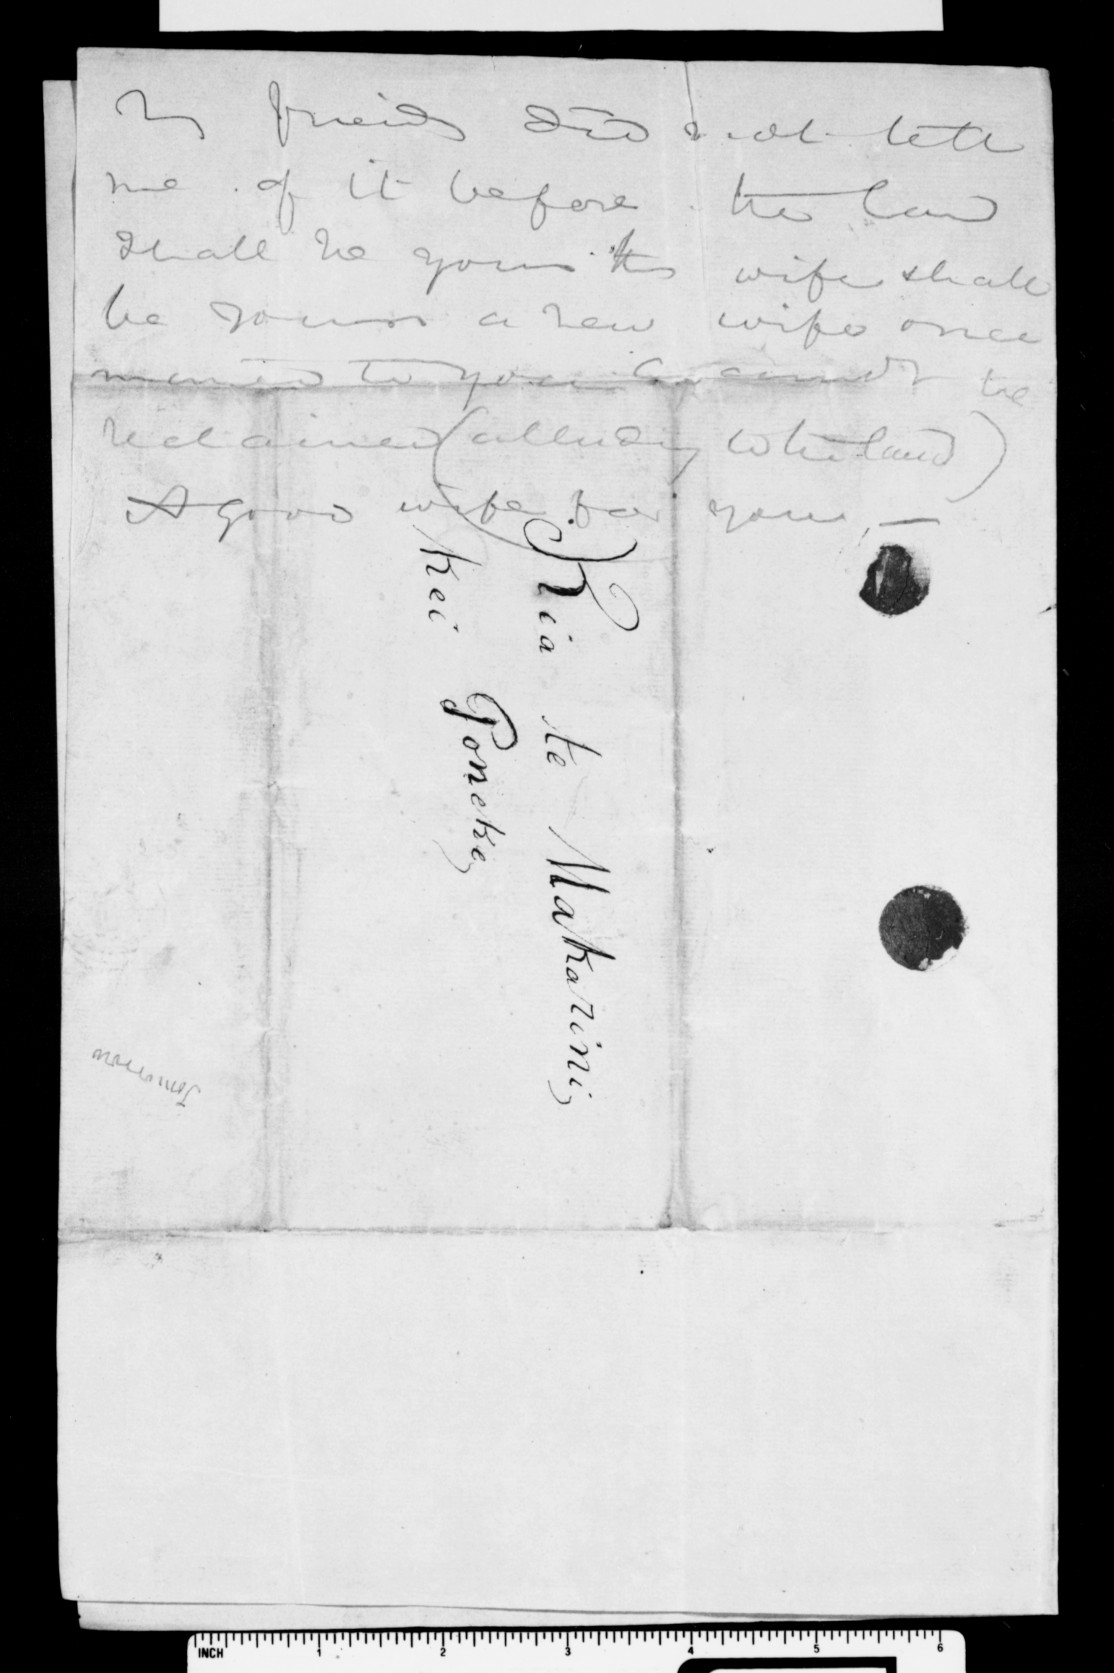 My friends did not tell
me of it before the land
shall be yours the wife shall
be yours a new wife once
married to you cannot be
reclaimed (alluding to the land)
A good wife for you, —
Kia te Makarini,
Kei Poneke,
Tomorrow
INCH 1 2 3 4 5 6